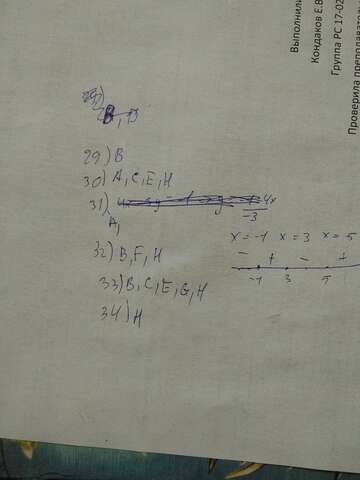 Выполнил
Кондаков Е.В
Группа РС 17-02
Проверила преподавател
29) В
30) А, С, Е, Н
31)
4x
-3
А,
32) В, F, Н
33) В, С, Е, G, Н
34) Н
x = -1 x = 3 x = 5
- + - +
-1 3 5